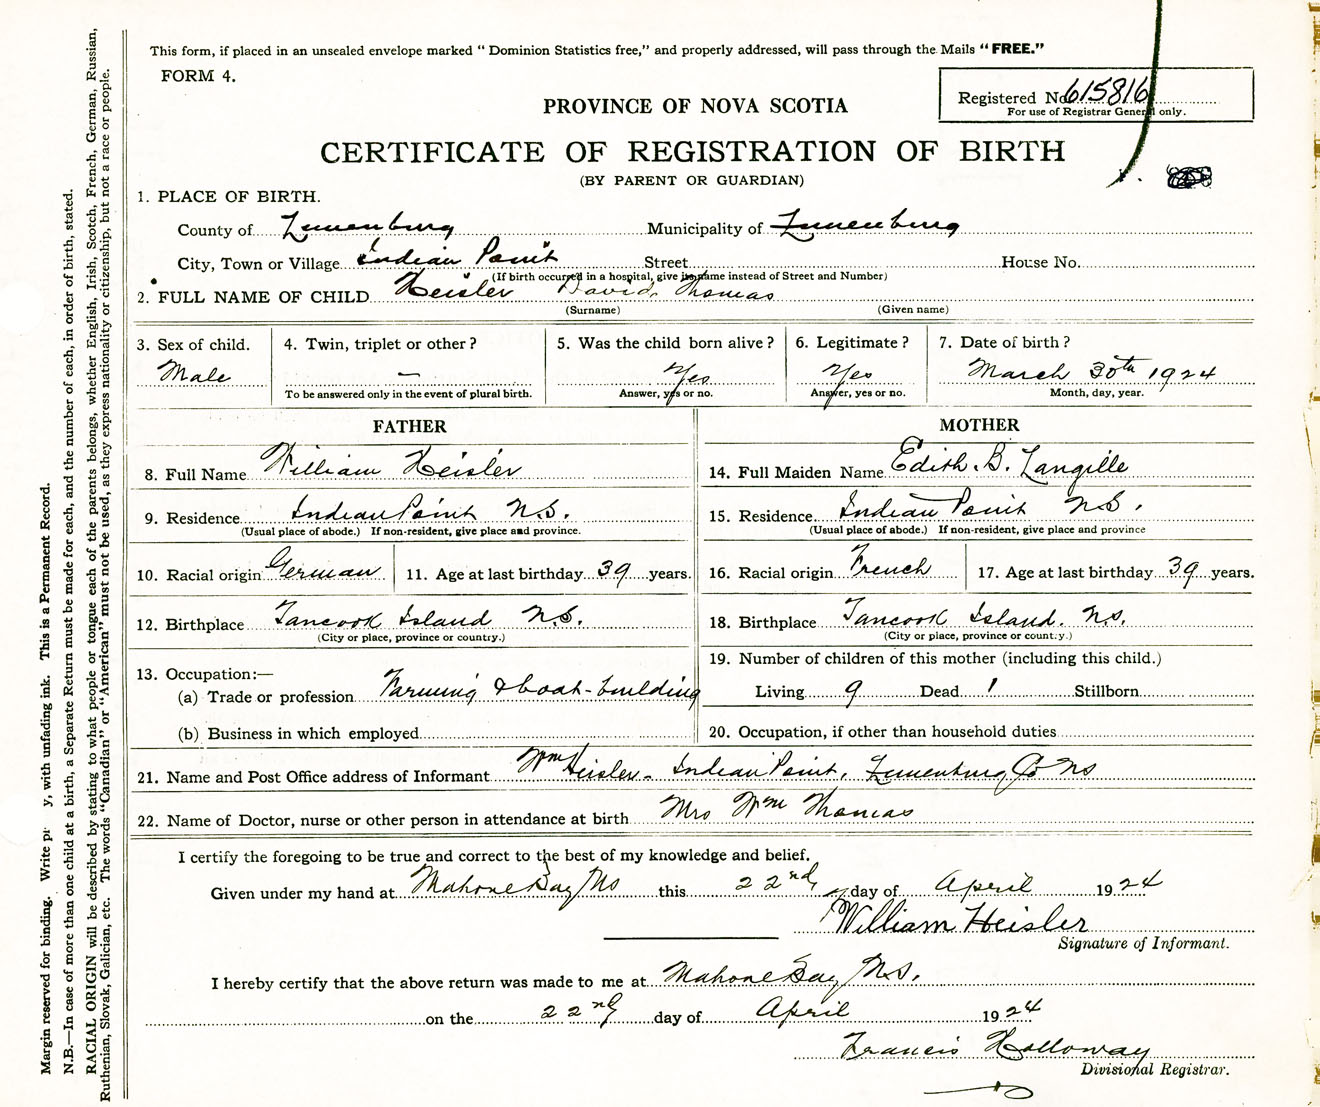 This form, if placed in an unsealed envelope marked “ Dominion Statistics free,” and properly addressed, will pass through the Mails “ FREE.”
FORM 4.
Registered No. 615816
For use of Registrar General only.
PROVINCE OF NOVA SCOTIA
CERTIFICATE OF REGISTRATION OF BIRTH
(BY PARENT OR GUARDIAN)
1. PLACE OF BIRTH.
County of Lunenburg Municipality of Lunenburg
City, Town or Village Indian Point Street House No.
(If birth occurred in a hospital, give its name instead of Street and Number)
2. FULL NAME OF CHILD Heisler David Thomas
(Surname) (Given name)
3. Sex of child. 4. Twin, triplet or other ? 5. Was the child born alive ? 6. Legitimate ? 7. Date of birth ?
Male — Yes Yes March 30th 1924
To be answered only in the event of plural birth. Answer, yes or no. Answer, yes or no. Month, day, year.
FATHER MOTHER
8. Full Name William Heisler 14. Full Maiden Name Edith. B. Langille
9. Residence Indian Point N.S. 15. Residence Indian Point N.S.
(Usual place of abode.) If non-resident, give place and province. (Usual place of abode.) If non-resident, give place and province
10. Racial origin German 11. Age at last birthday 39 years. 16. Racial origin French 17. Age at last birthday 39 years.
12. Birthplace Tancook Island N.S. 18. Birthplace Tancook Island. N.S.
(City or place, province or country.) (City or place, province or country.)
13. Occupation:—
(a) Trade or profession Farming & boat-building
(b) Business in which employed
19. Number of children of this mother (including this child.)
Living 9 Dead 1 Stillborn
20. Occupation, if other than household duties
21. Name and Post Office address of Informant Wm Heisler - Indian Point, Lunenburg Co NS
22. Name of Doctor, nurse or other person in attendance at birth Mrs Wm Thomas
I certify the foregoing to be true and correct to the best of my knowledge and belief.
Given under my hand at Mahone Bay NS this 22nd day of April 1924
William Heisler
Signature of Informant.
I hereby certify that the above return was made to me at Mahone Bay N.S.
on the 22nd day of April 1924
Francis Holloway
Divisional Registrar.
Margin reserved for binding. Write y, with unfading ink. This is a Permanent Record.
N.B.—In case of more than one child at a birth, a Separate Return must be made for each, and the number of each, in order of birth, stated.
RACIAL ORIGIN will be described by stating to what people or tongue each of the parents belongs, whether English, Irish, Scotch, French, German, Russian,
Ruthenian, Slovak, Galician, etc. The words “Canadian” or “American” must not be used, as they express nationality or citizenship, but not a race or people.